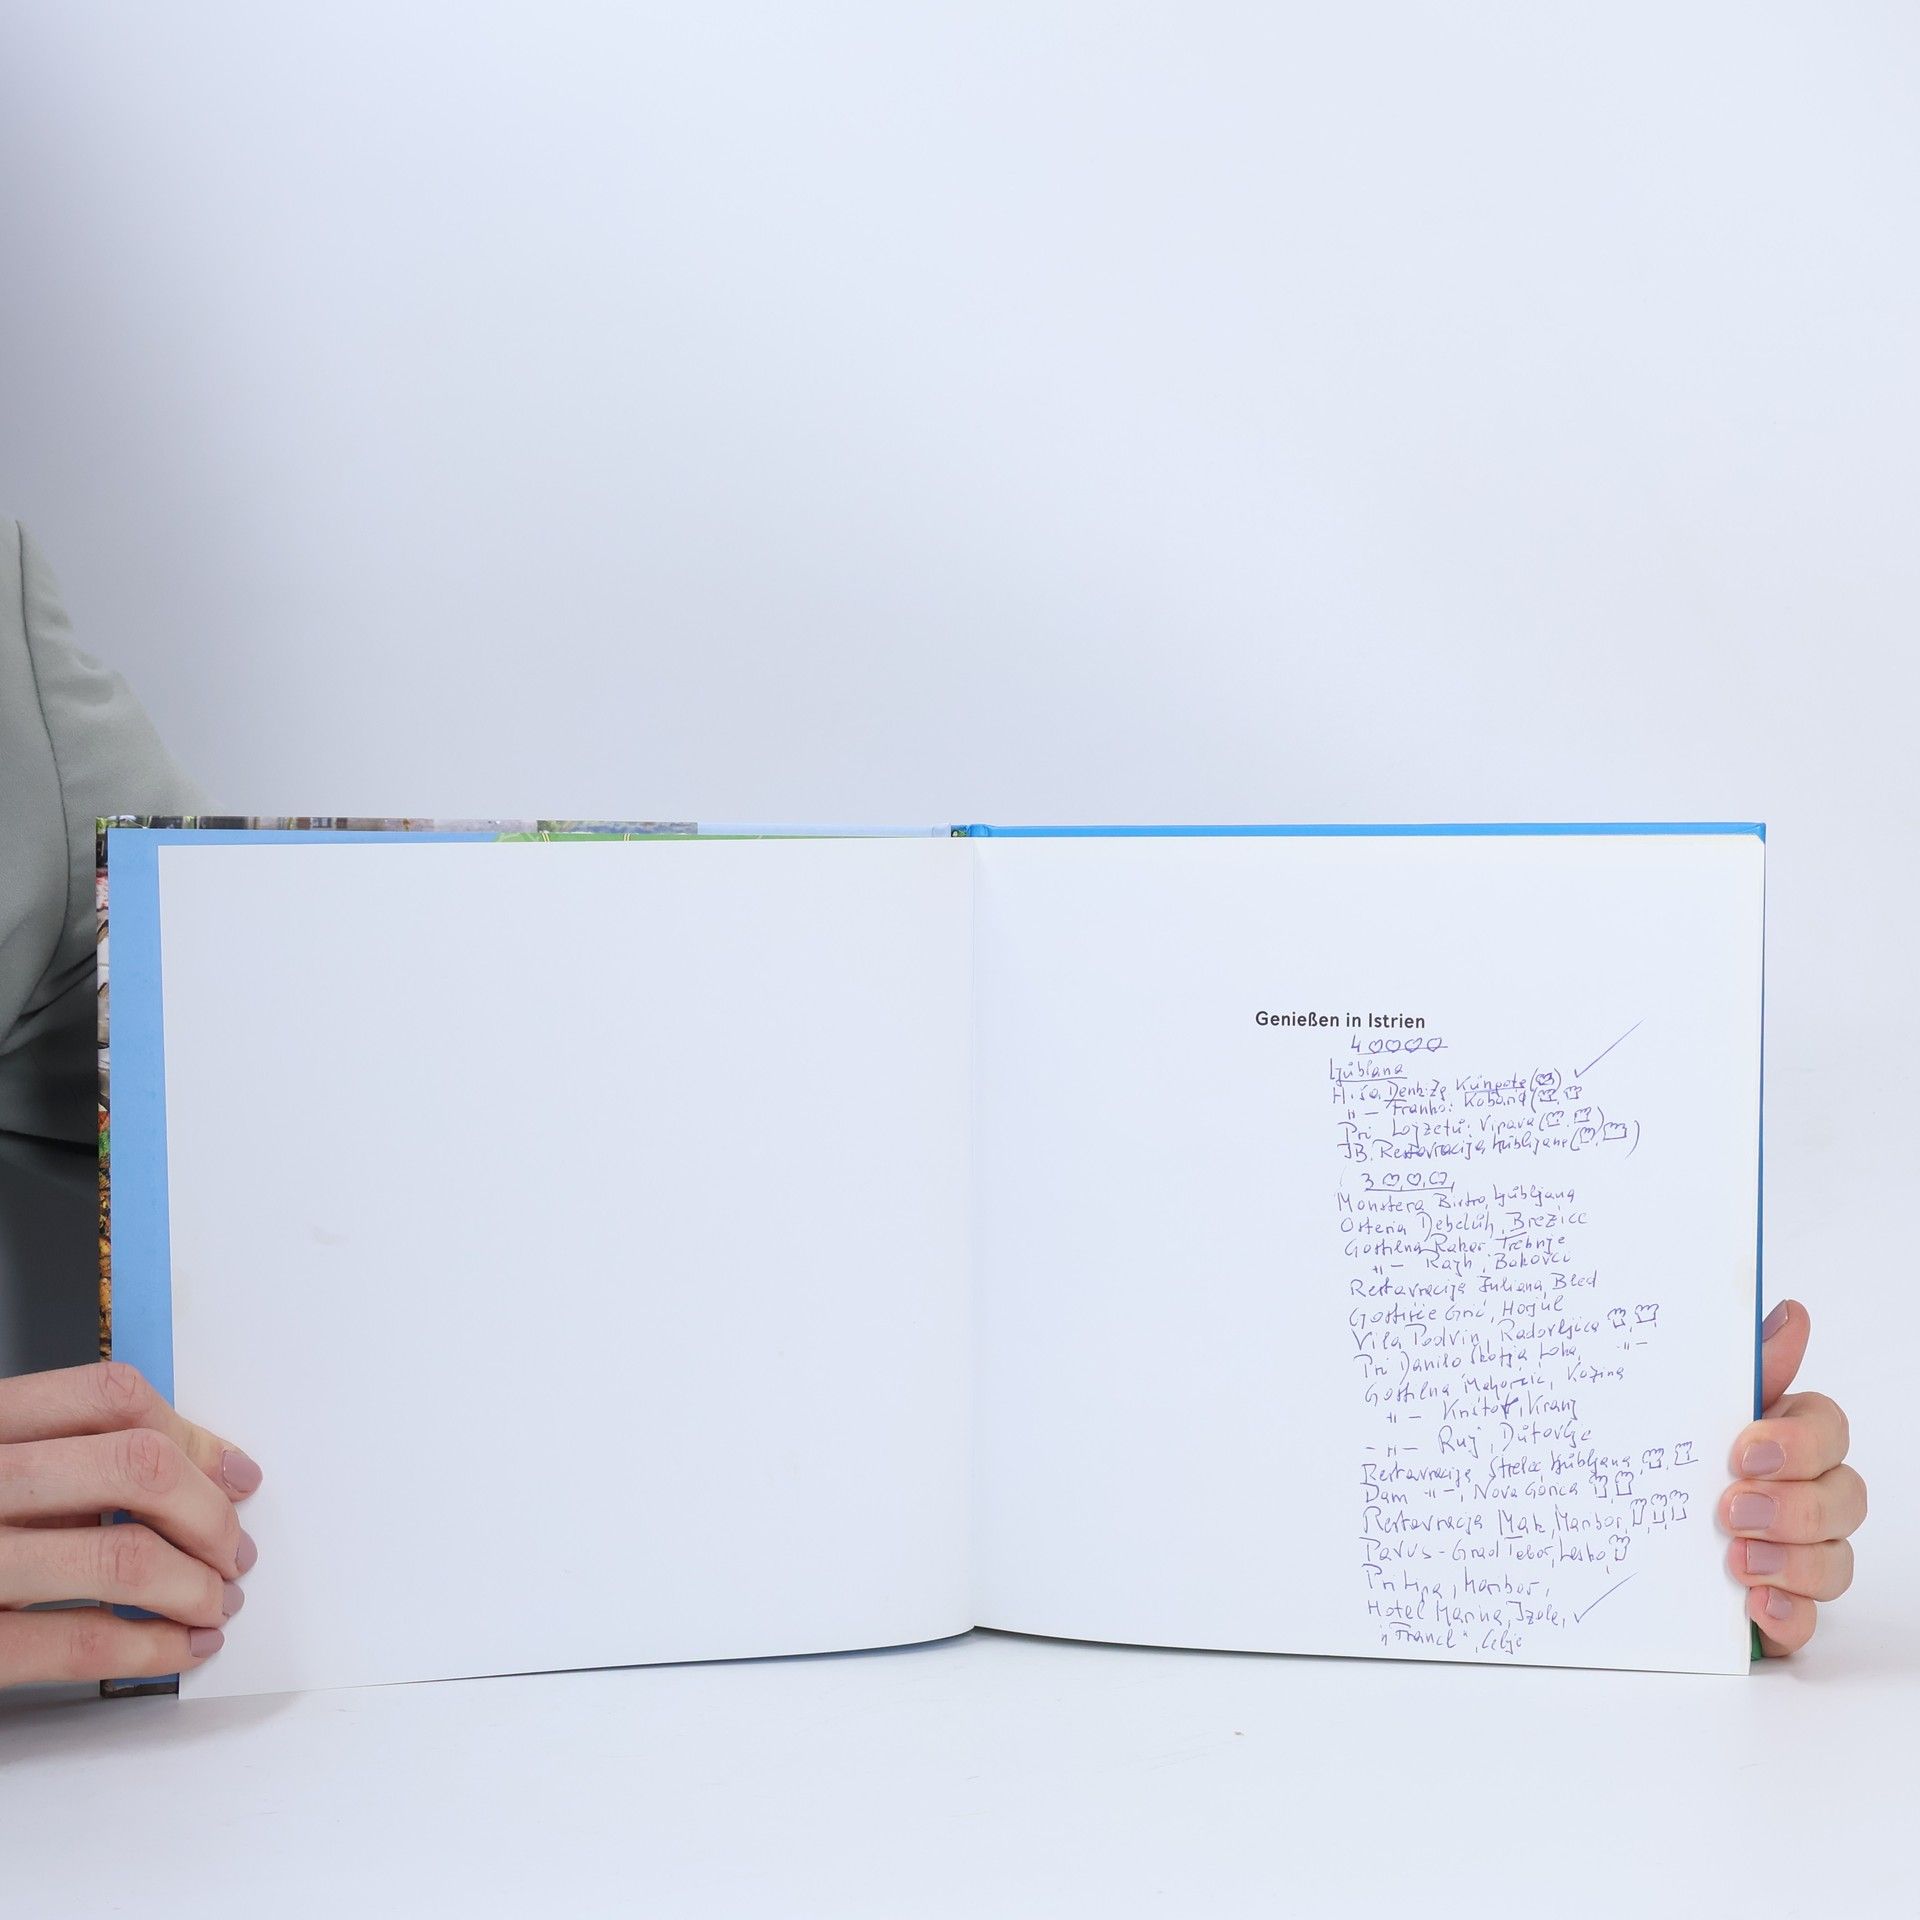 Genießen in Istrien
4
Ljůblana
Hiša Denk: Zg Kůngota
-"- Franko: Kobarid
Pri Lojzetů: Vipava
JB. Restavracija, Ljůbljana
3
Monstera Bistro, Ljůbljana
Osteria Debelůh, Brežice
Gostilna Rakar Trebnje
-"- Rajh, Bakovci
Restavracija Juliana, Bled
Gostišče Grič, Horjůl
Vila Podvin, Radovljica
Pri Danilo Škofja Loka, -"-
Gostilna Mahorčič, Kozina
-"- Krištof, Kranj
-"- Ruj, Důtovlje
Restavracija Strelec, Ljůbljana
Dam -"-, Nova Gorica
Restavracija Mak, Maribor,
Pavus - Grad Tabor, Laško,
Pri Lipa, Maribor,
Hotel Marina, Izola,
"Francl", Celje